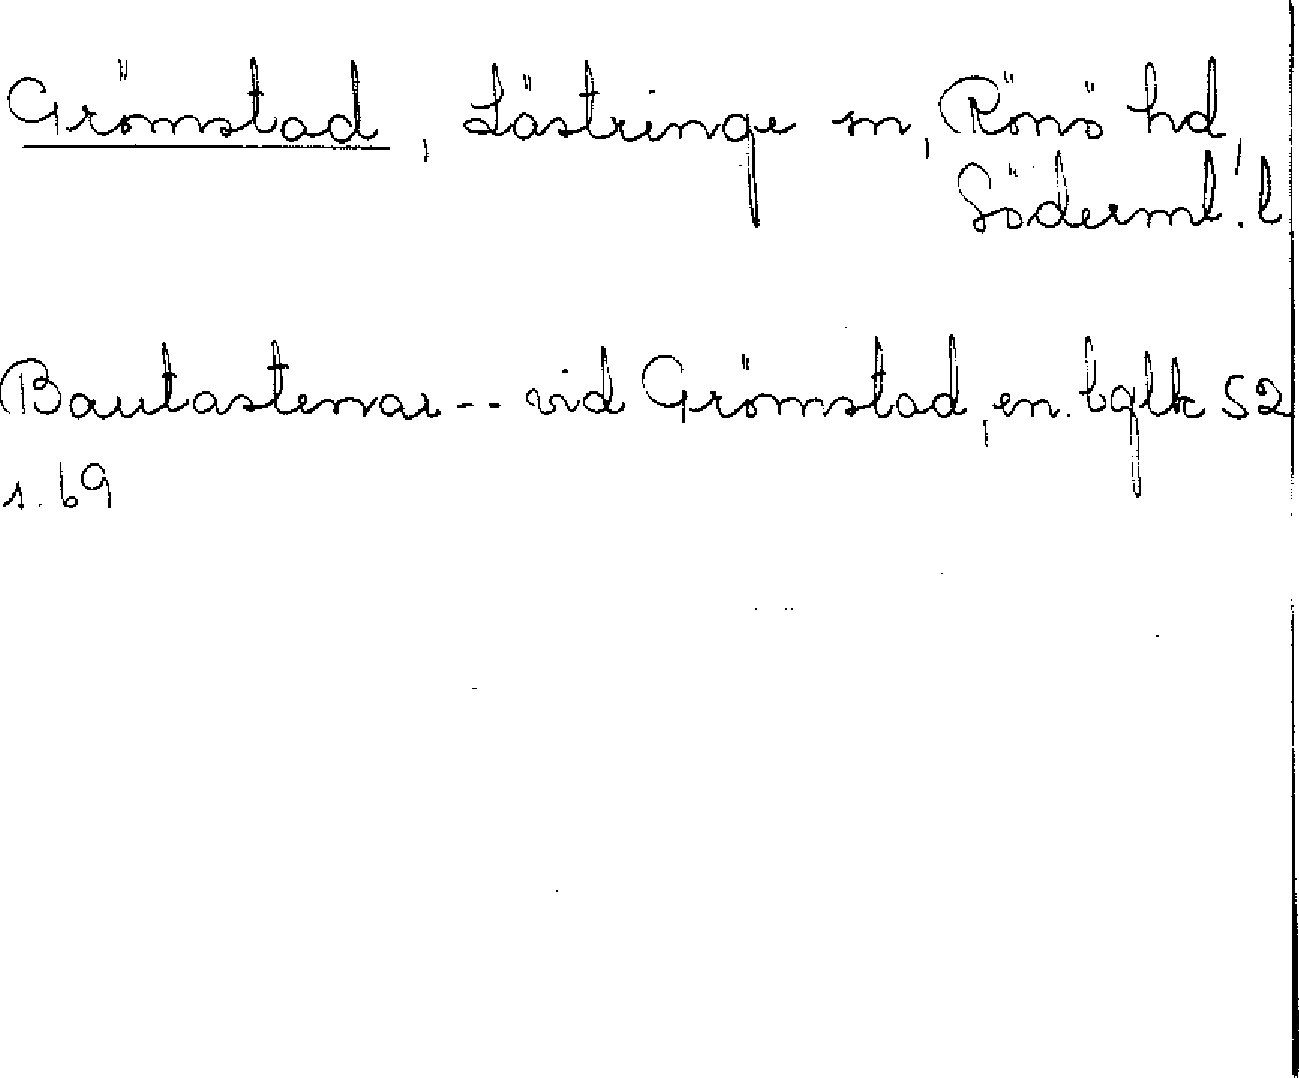 Grömstad, Lästringe sn, Rönö hd,
Söderml. l
Bautastenar -- vid Grömstad, en. bglk S2
s. 69